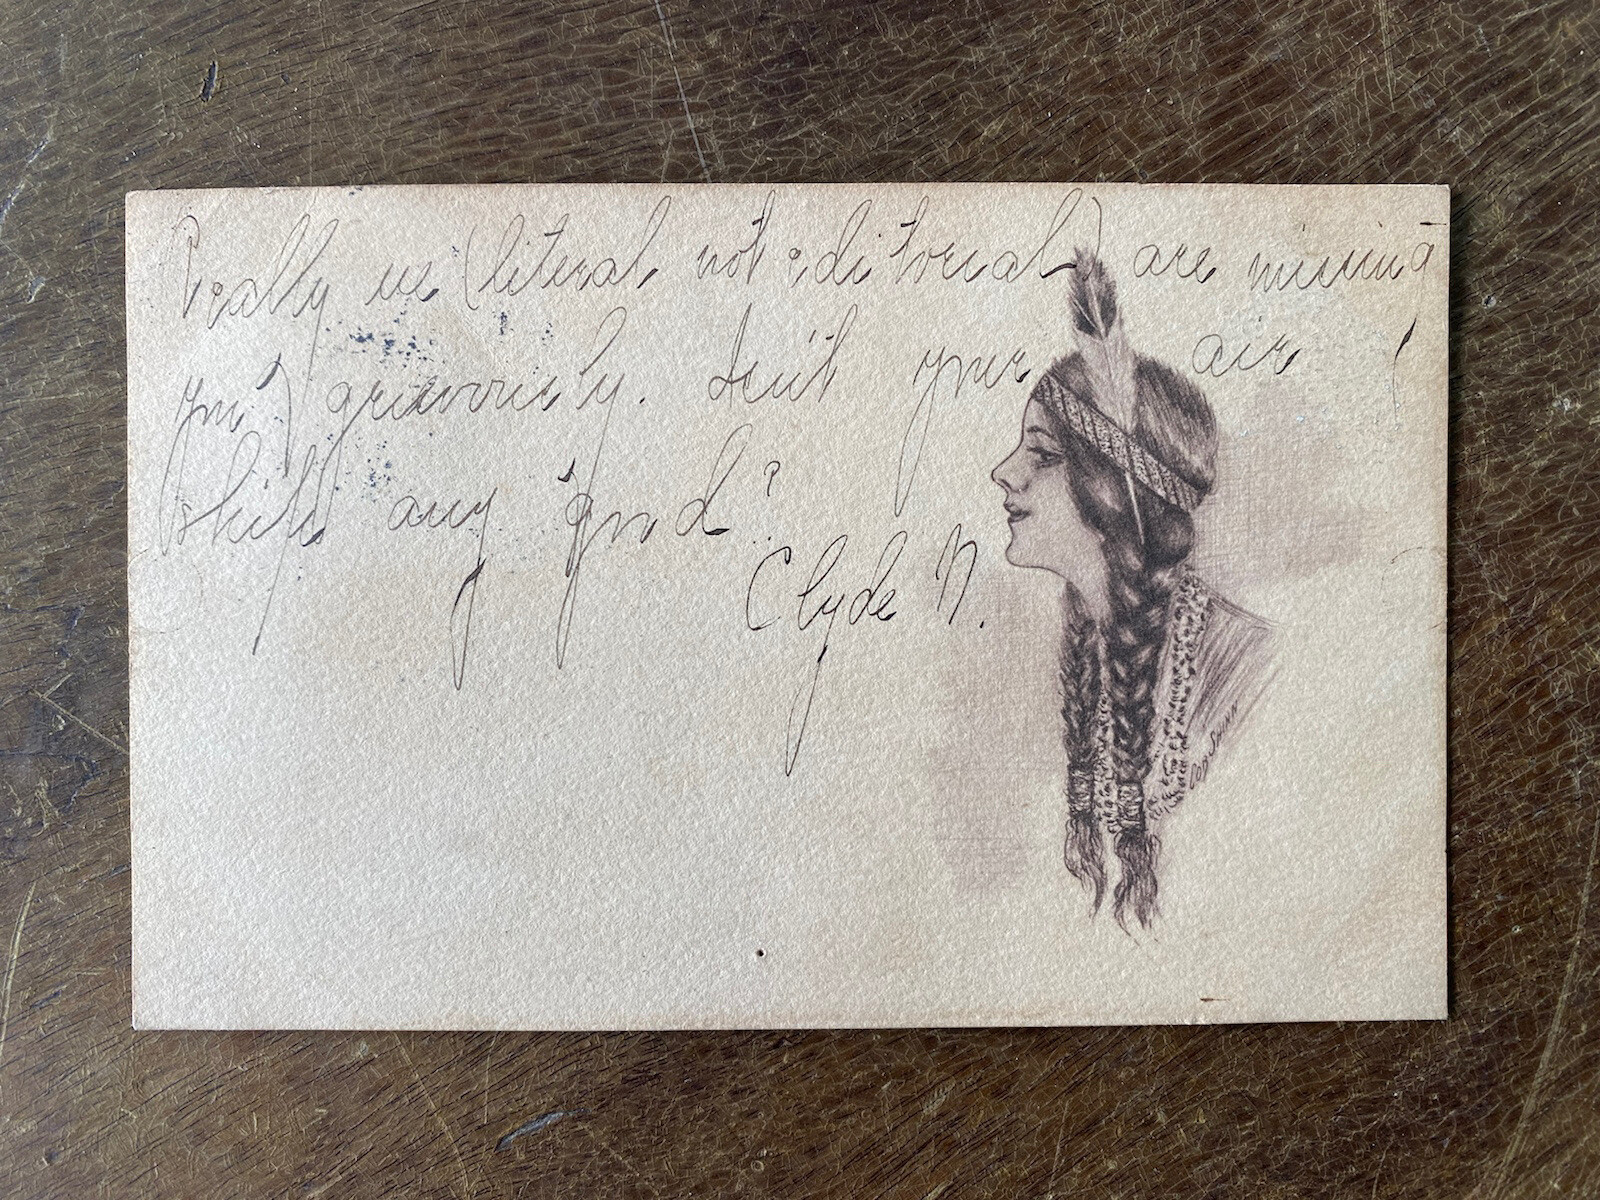 Really we (literal not editorial) are missing
you grievously. Isn't your air
ship any good?
Clyde N.
Cobb Shinn